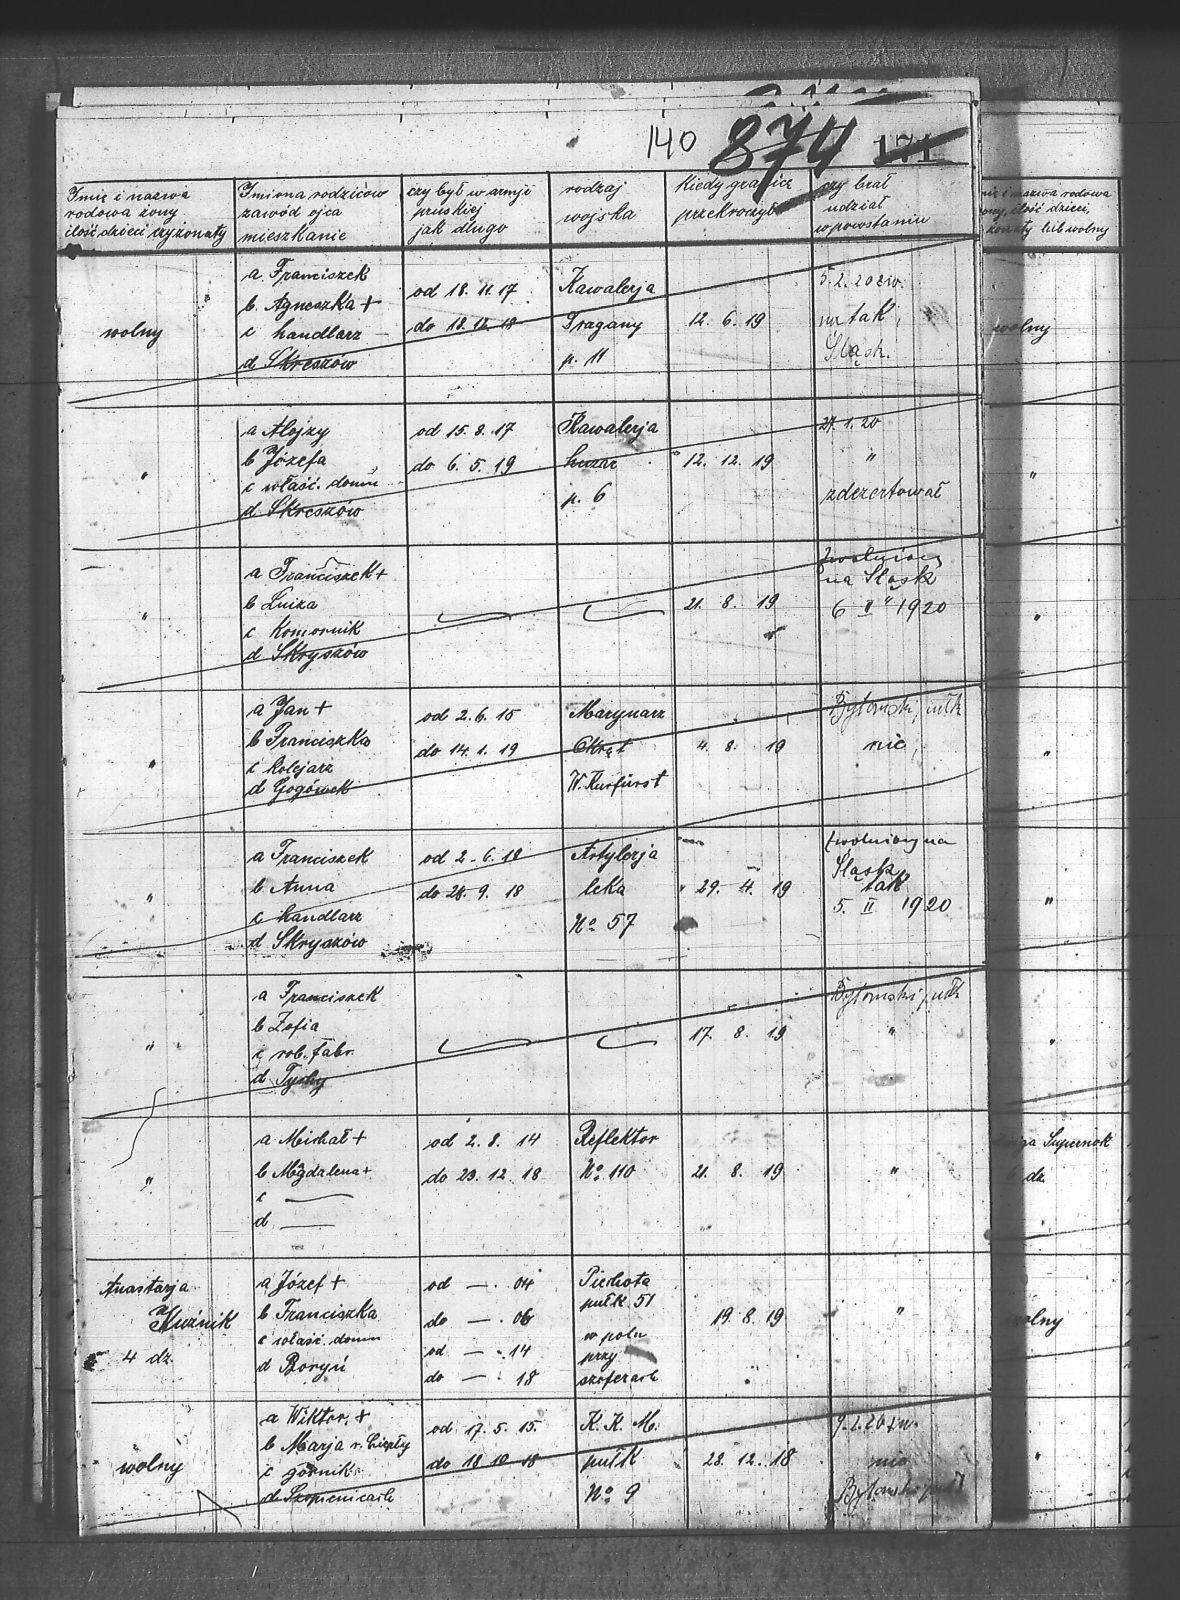 140 874 171
Imię i nazwa
rodowa żony
ilość dzieci czy żonaty
Imiona rodziców
zawód ojca
mieszkanie
czy był w armji
pruskiej
jak długo
rodzaj
wojska
kiedy granicę
przekroczył
czy brał
udział
w powstaniu
wolny
a Franciszek
b Agneszka +
c handlarz
d Skreszów
od 18. 11. 17
do 18. 12. 18
Kawalerja
Dragany
p. 11
12. 6. 19
5. 2. 20 zw.
na tak,
Śląsk.
"
a Alojzy
b Józefa
c właść. domu
d Skreszów
od 15. 8. 17
do 6. 5. 19
Kawalerja
huzar
p. 6
12. 12. 19
27. 1. 20
"
zdezertował
"
a Franciszek +
b Luiza
c Komornik
d Skryszów
21. 8. 19
zwolniony
na Śląsk
6 II 1920
"
a Jan +
b Franciszka
c kolejarz
d Gogówek
od 2. 6. 15
do 14. 1. 19
Marynarz
Okręt
W. Kurfürst
4. 8. 19
Bytomski pułk
nie,
"
a Franciszek
b Anna
c handlarz
d Skryszów
od 2. 6. 18
do 28. 9. 18
Artylerja
leka
No 57
29. 4. 19
zwolniony na
Śląsk
tak
5. II 1920
"
a Franciszek
b Zofia
c rob. fabr.
d Tychy
17. 8. 19
Bytomski pułk
"
"
a Michał +
b Magdalena +
c
d
od 2. 8. 14
do 23. 12. 18
Reflektor
No. 110
21. 8. 19
"
Anastazja
Kuźnik
4 dz.
a Józef +
b Franciszka
c właść. domu
d Boryń
od — . 04
do — . 06
od — . 14
do — . 18
Piechota
pułk 51
w polu
przy
szoferach
19. 8. 19
"
wolny
a Wiktor. +
b Marja r.
c górnik
d Szopienicach
od 17. 5. 15.
do 18 10 18
K. K. M.
pułk
No 9
28. 12. 18
9. 2. 20 zw.
nie
Bytomski pułk
nazwa rodowa
ilość dzieci,
żonaty lub wolny
wolny
"
"
"
"
"
Supernok
dz.
wolny
"